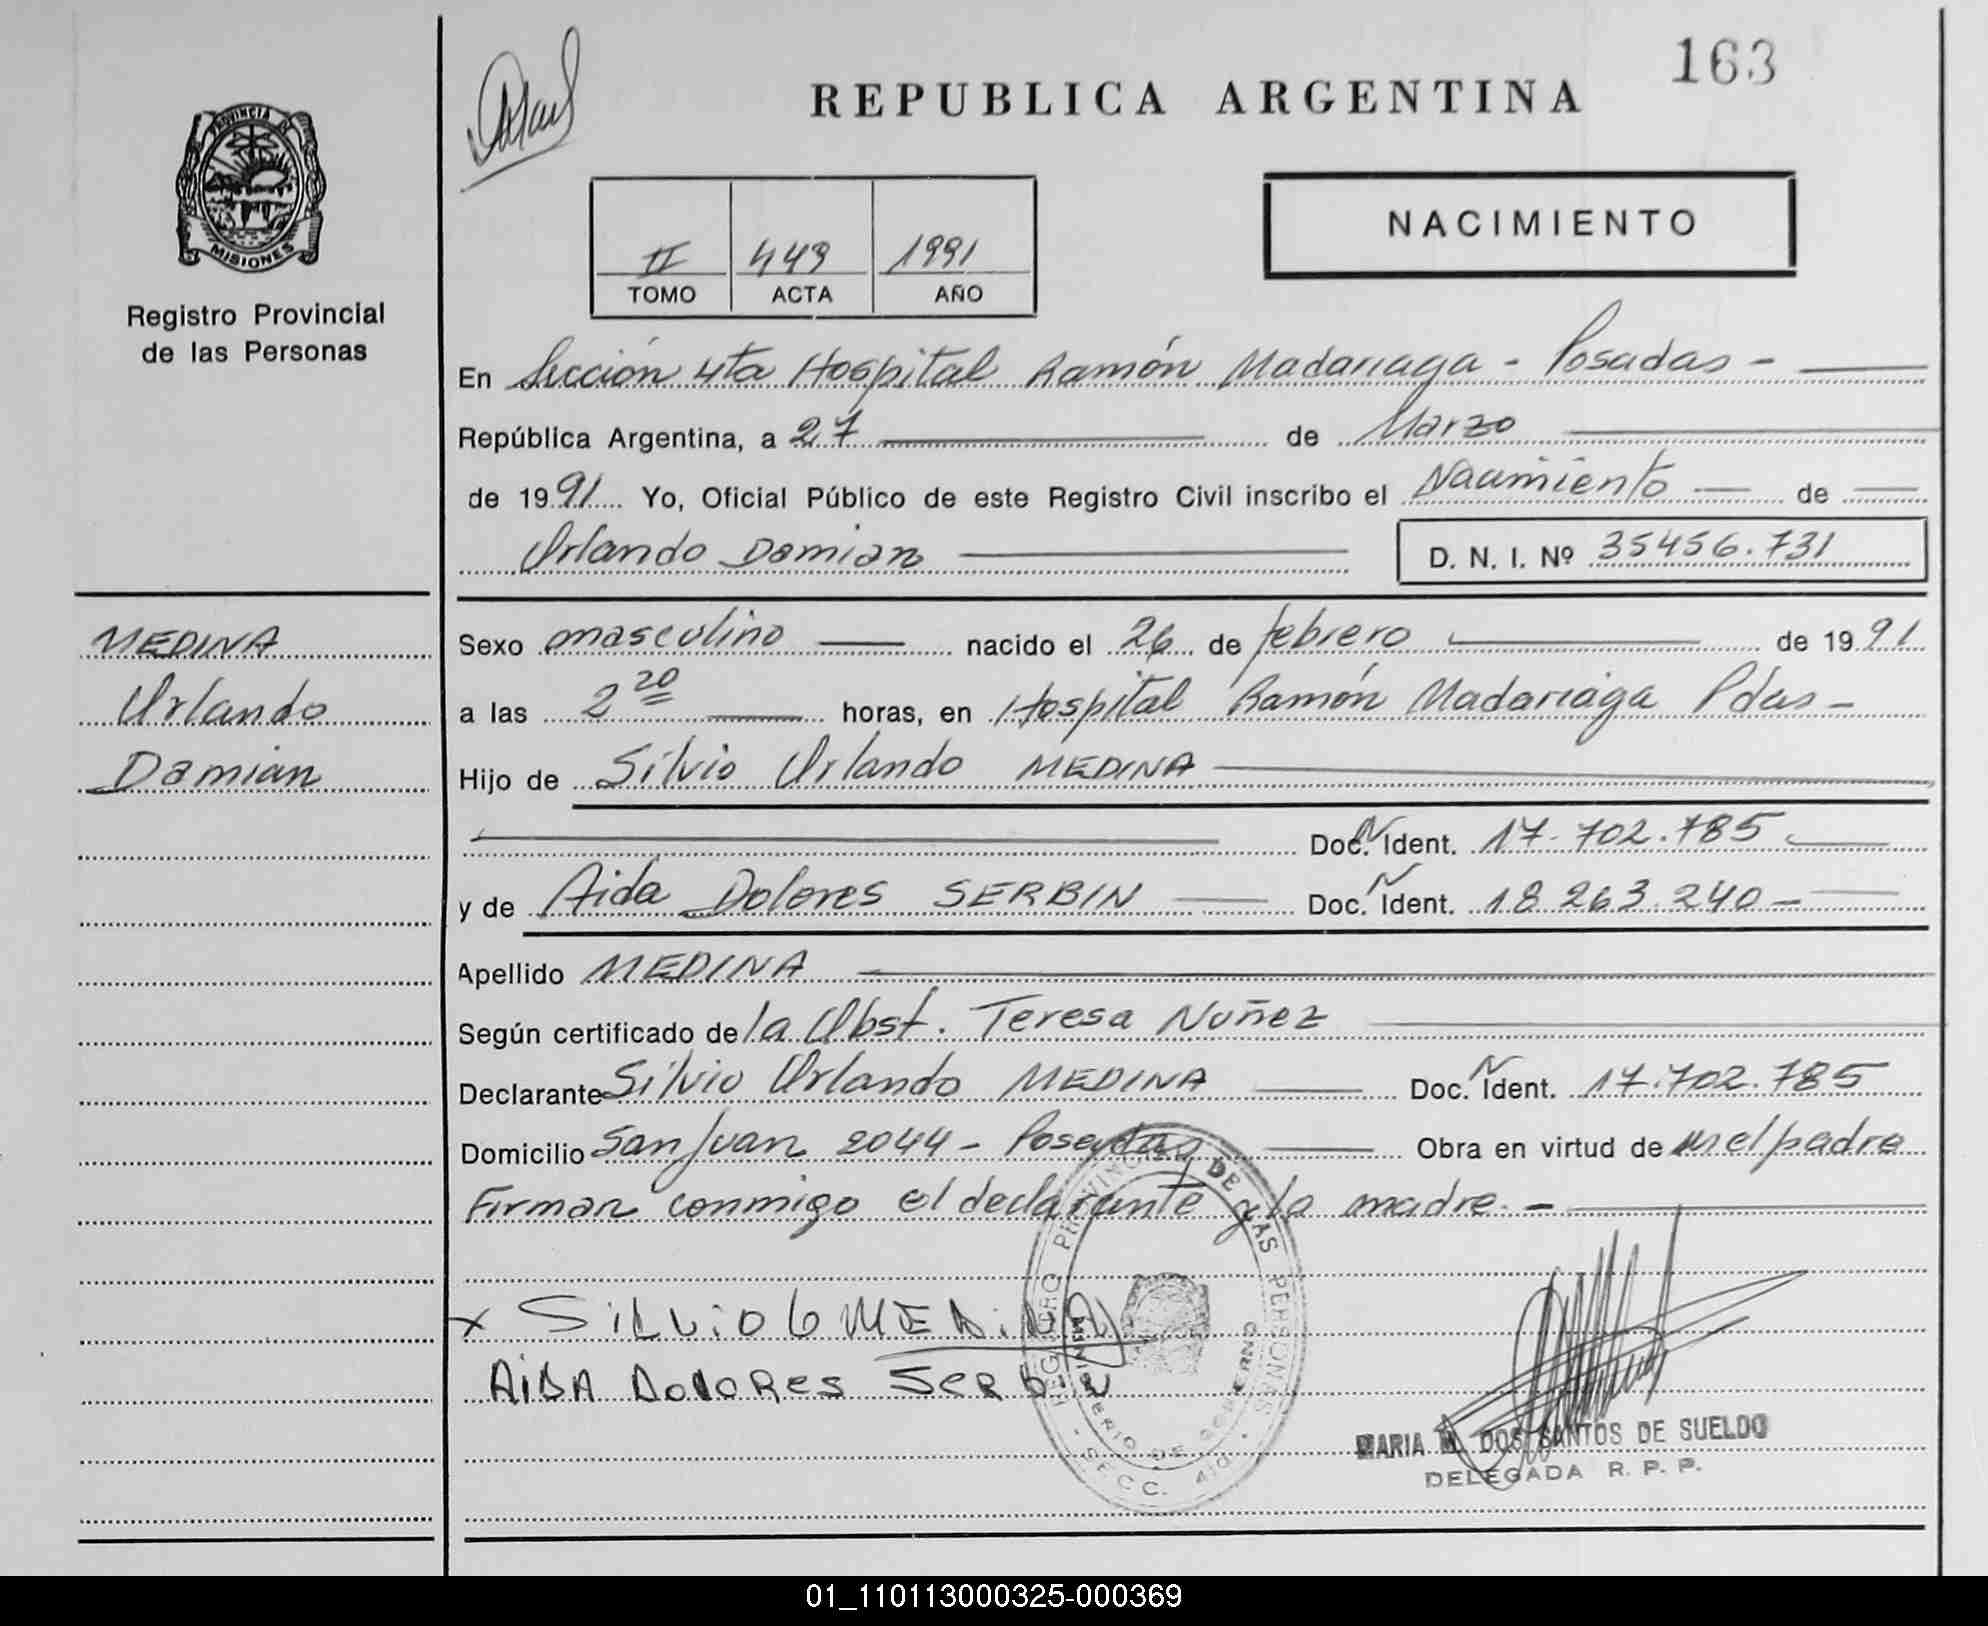 163
REPUBLICA ARGENTINA
PROVINCIA DE
MISIONES
Registro Provincial
de las Personas
NACIMIENTO
II 449 1991
TOMO ACTA AÑO
En Sección 4ta Hospital Ramón Madariaga - Posadas -
República Argentina, a 27 de Marzo
de 1991 Yo, Oficial Público de este Registro Civil inscribo el Nacimiento de
Orlando Damian D. N. I. Nº 35456.731
MEDINA
Orlando
Damian
Sexo masculino nacido el 26 de febrero de 1991
a las 2 20 horas, en Hospital Ramón Madariaga Pdas -
Hijo de Silvio Orlando MEDINA
Doc. N Ident. 17.702.785
y de Aida Dolores SERBIN Doc. N Ident. 18.263.240 -
Apellido MEDINA
Según certificado de la Obst. Teresa Nuñez
Declarante Silvio Orlando MEDINA Doc. N Ident. 17.702.785
Domicilio San Juan 2044 - Posadas Obra en virtud de ser el padre
Firman conmigo el declarante y la madre. -
x SiLViO O MEDiNA
AiDA DOLORes SeRbiN
REGISTRO PROVINCIAL DE LAS PERSONAS
MINISTERIO DE GOBIERNO
- SECC. 4ta. -
MARIA M. DOS SANTOS DE SUELDO
DELEGADA R. P. P.
01_110113000325-000369